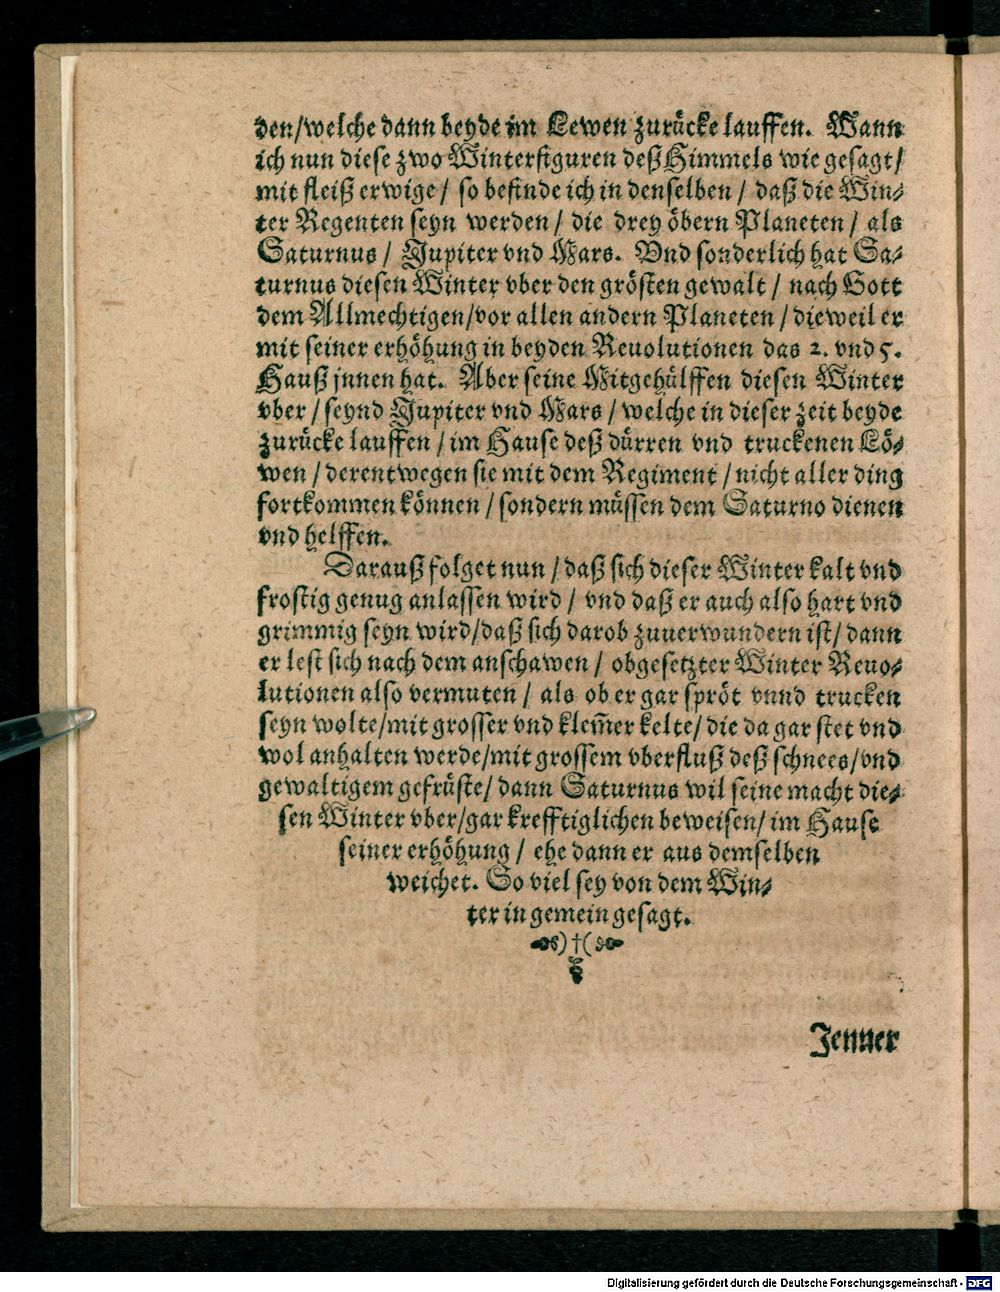 den/welche dann beyde im Lewen zurücke lauffen. Wann
ich nun diese zwo Winterfiguren deß Himmels wie gesagt/
mit fleiß erwige/ so befinde ich in denselben/ daß die Win-
ter Regenten seyn werden/ die drey öbern Planeten/ als
Saturnus/ Jupiter vnd Mars. Vnd sonderlich hat Sa-
turnus diesen Winter vber den grösten gewalt/ nach Gott
dem Allmechtigen/vor allen andern Planeten/ dieweil er
mit seiner erhöhung in beyden Reuolutionen das 2. vnd 5.
Hauß jnnen hat. Aber seine Mitgehülffen diesen Winter
vber/ seynd Jupiter vnd Mars/ welche in dieser zeit beyde
zurücke lauffen/ im Hause deß dürren vnd truckenen Lö-
wen/ derentwegen sie mit dem Regiment/ nicht aller ding
fortkommen können/ sondern müssen dem Saturno dienen
vnd helffen.
Darauß folget nun/ daß sich dieser Winter kalt vnd
frostig genug anlassen wird/ vnd daß er auch also hart vnd
grimmig seyn wird/daß sich darob zuuerwundern ist/ dann
er lest sich nach dem anschawen/ obgesetzter Winter Reuo-
lutionen also vermuten/ als ob er gar spröt vnnd trucken
seyn wolte/mit grosser vnd klem̄er kelte/ die da gar stet vnd
wol anhalten werde/mit grossem vberfluß deß schnees/vnd
gewaltigem gefrüste/ dann Saturnus wil seine macht die-
sen Winter vber/gar krefftiglichen beweisen/ im Hause
seiner erhöhung/ ehe dann er aus demselben
weichet. So viel sey von dem Win-
ter in gemein gesagt.
)†(
Jenner
Digitalisierung gefördert durch die Deutsche Forschungsgemeinschaft - DFG